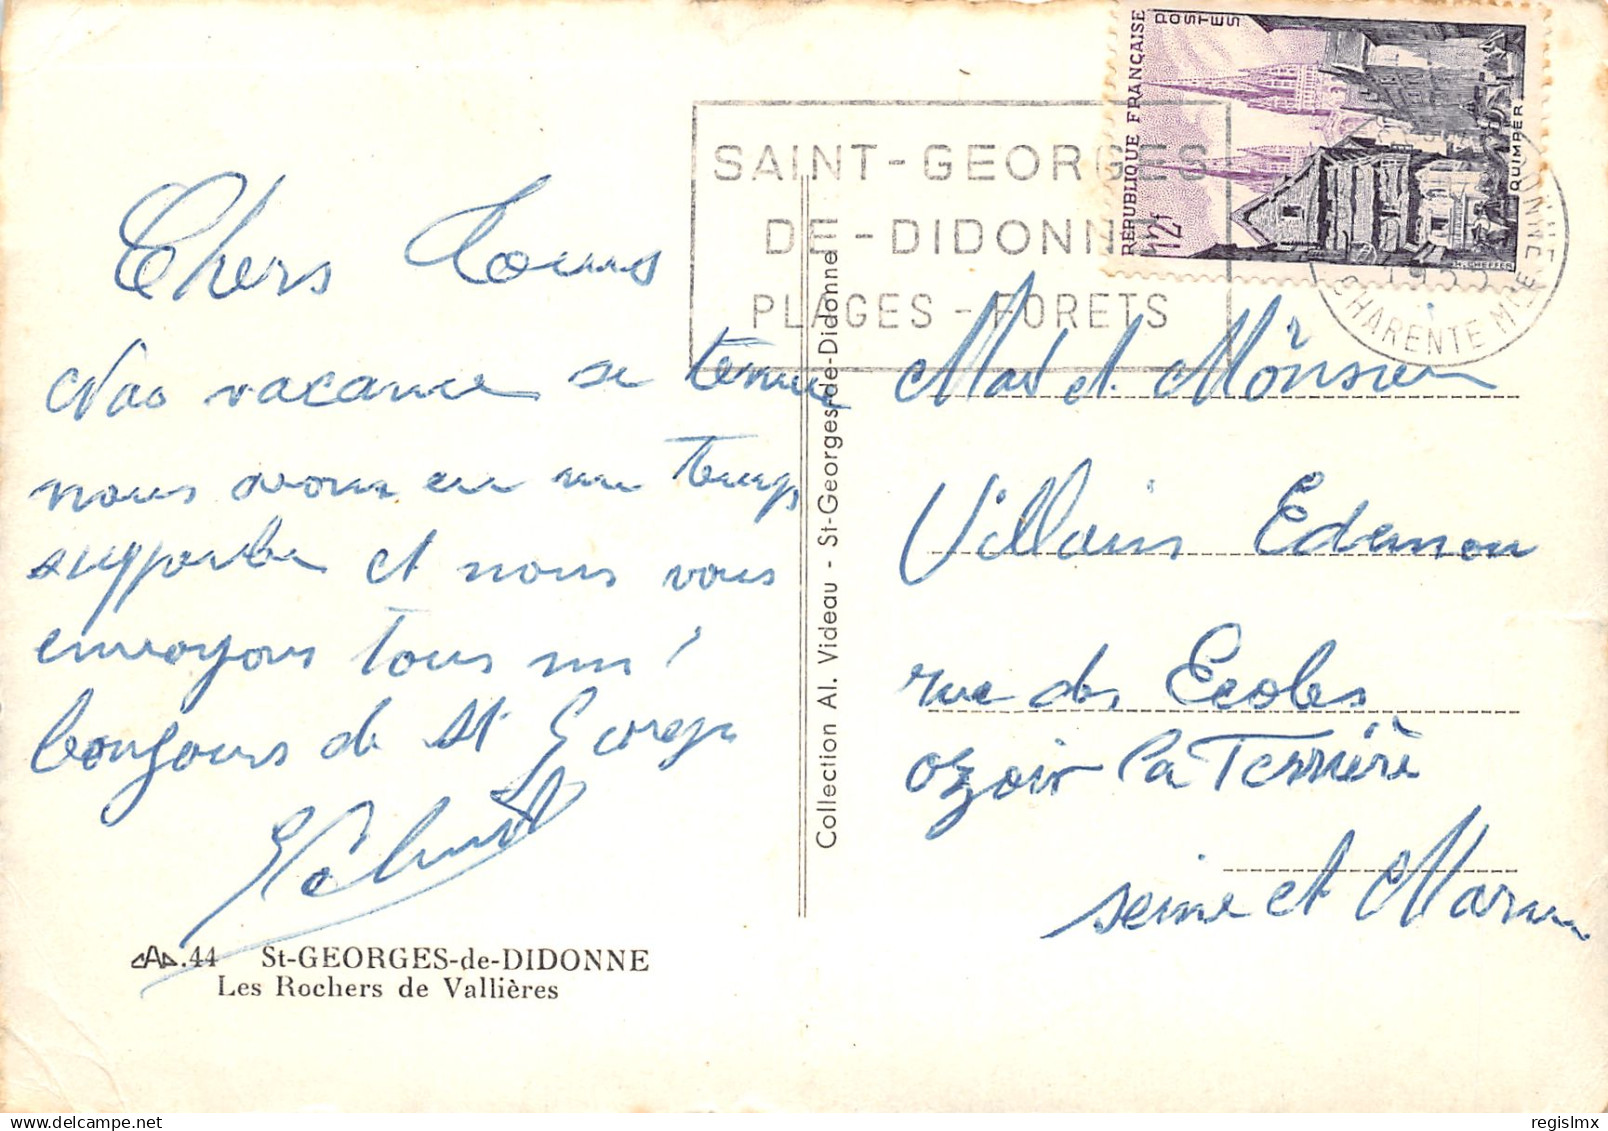 Chers Tous
Nos vacance se termine
nous avons eu un temps
supporte et nous vous
envoyons tous un
bonjours de St Georges
CAP.44 St-GEORGES-de-DIDONNE
Les Rochers de Vallières
Collection Al. Videau - St-Georges-de-Didonne - St-Georges-de-Didonne
SAINT-GEORGES
DE-DIDONNE
PLAGES-FORETS
RÉPUBLIQUE FRANÇAISE
POSTES
12f
QUIMPER
H. CHEFFER
DIDONNE
1955
CHARENTE MME
et Monsieur
Villain Edemon
rue des Ecoles
ozoir la Ferrière
seine et Marne
regislmx